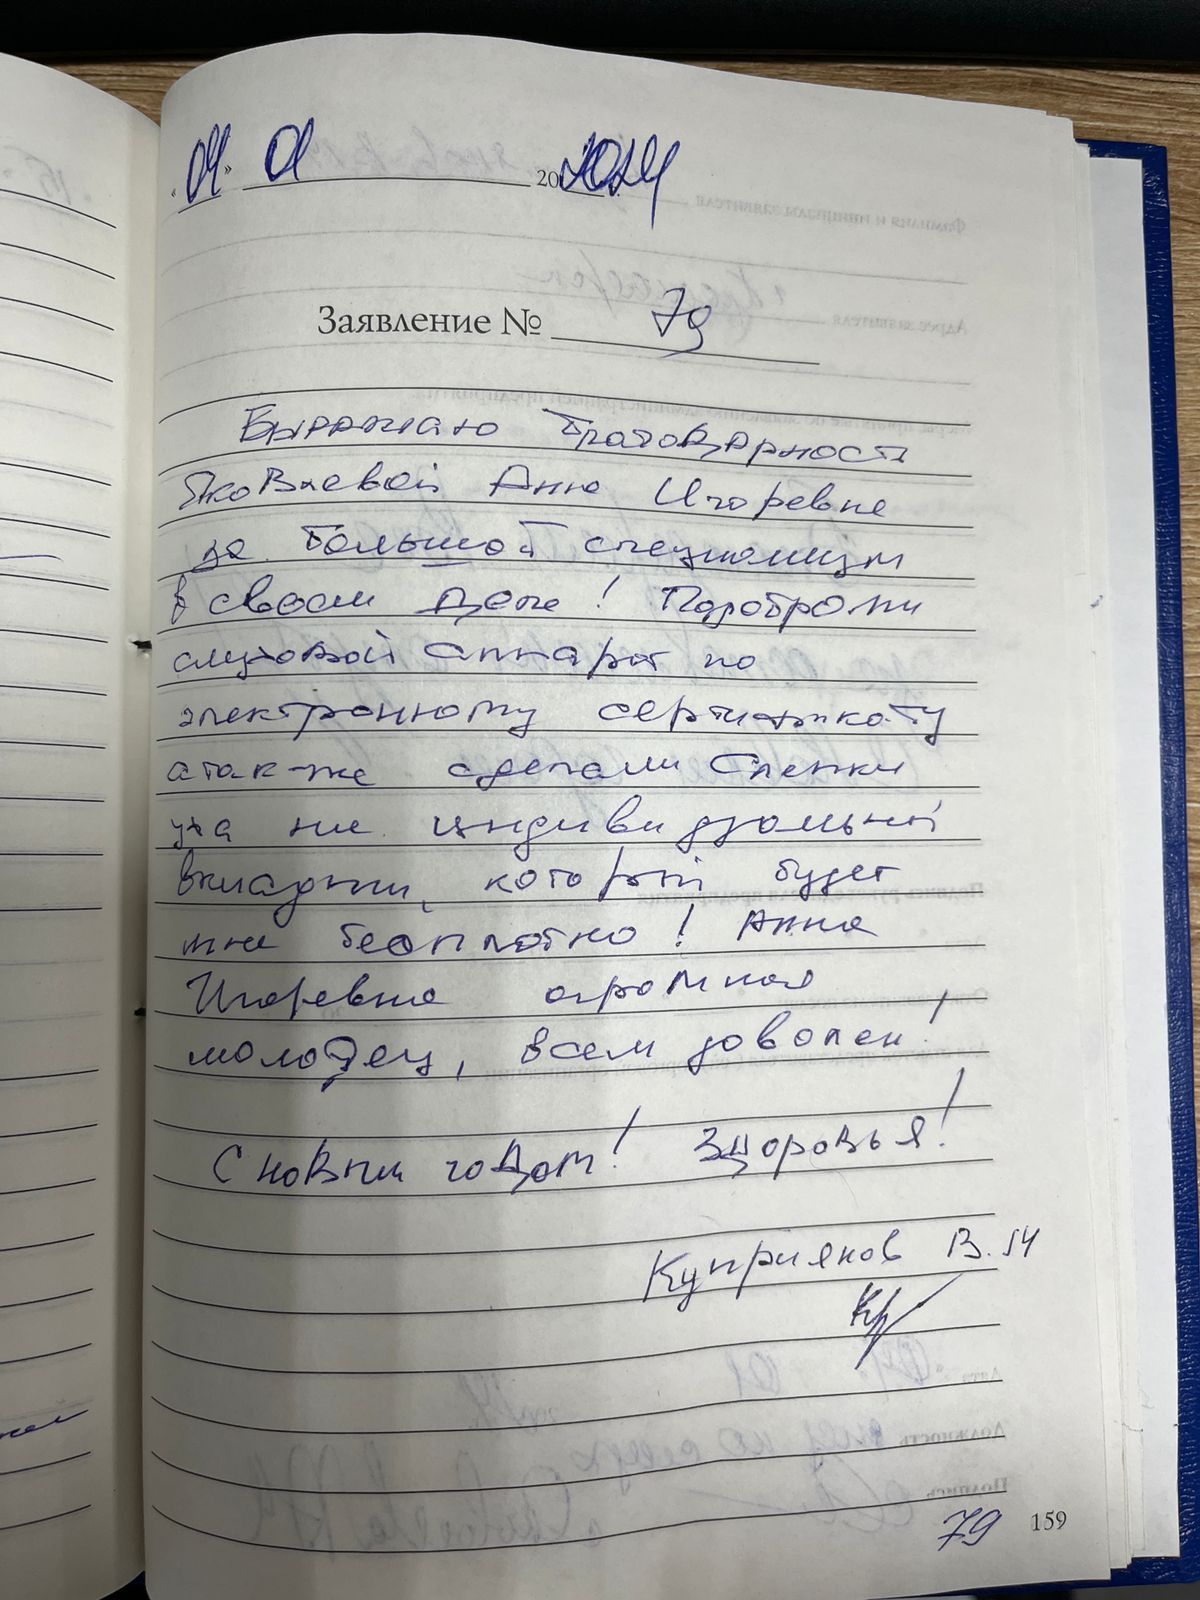 «04» 01 20 2024
Заявление № 79
Выражаю благодарность
Яковлевой Анне Игоревне
за большой специализм
в своем деле! Подобрали
слуховой аппарат по
электронному сертификату
а так-же сделали слепки
уха на индивидуальный
вкладыш, который будет
мне бесплатно! Анна
Игоревна огромная
молодец, всем доволен!
С новым годом! Здоровья!
Куприянов В.
79 159